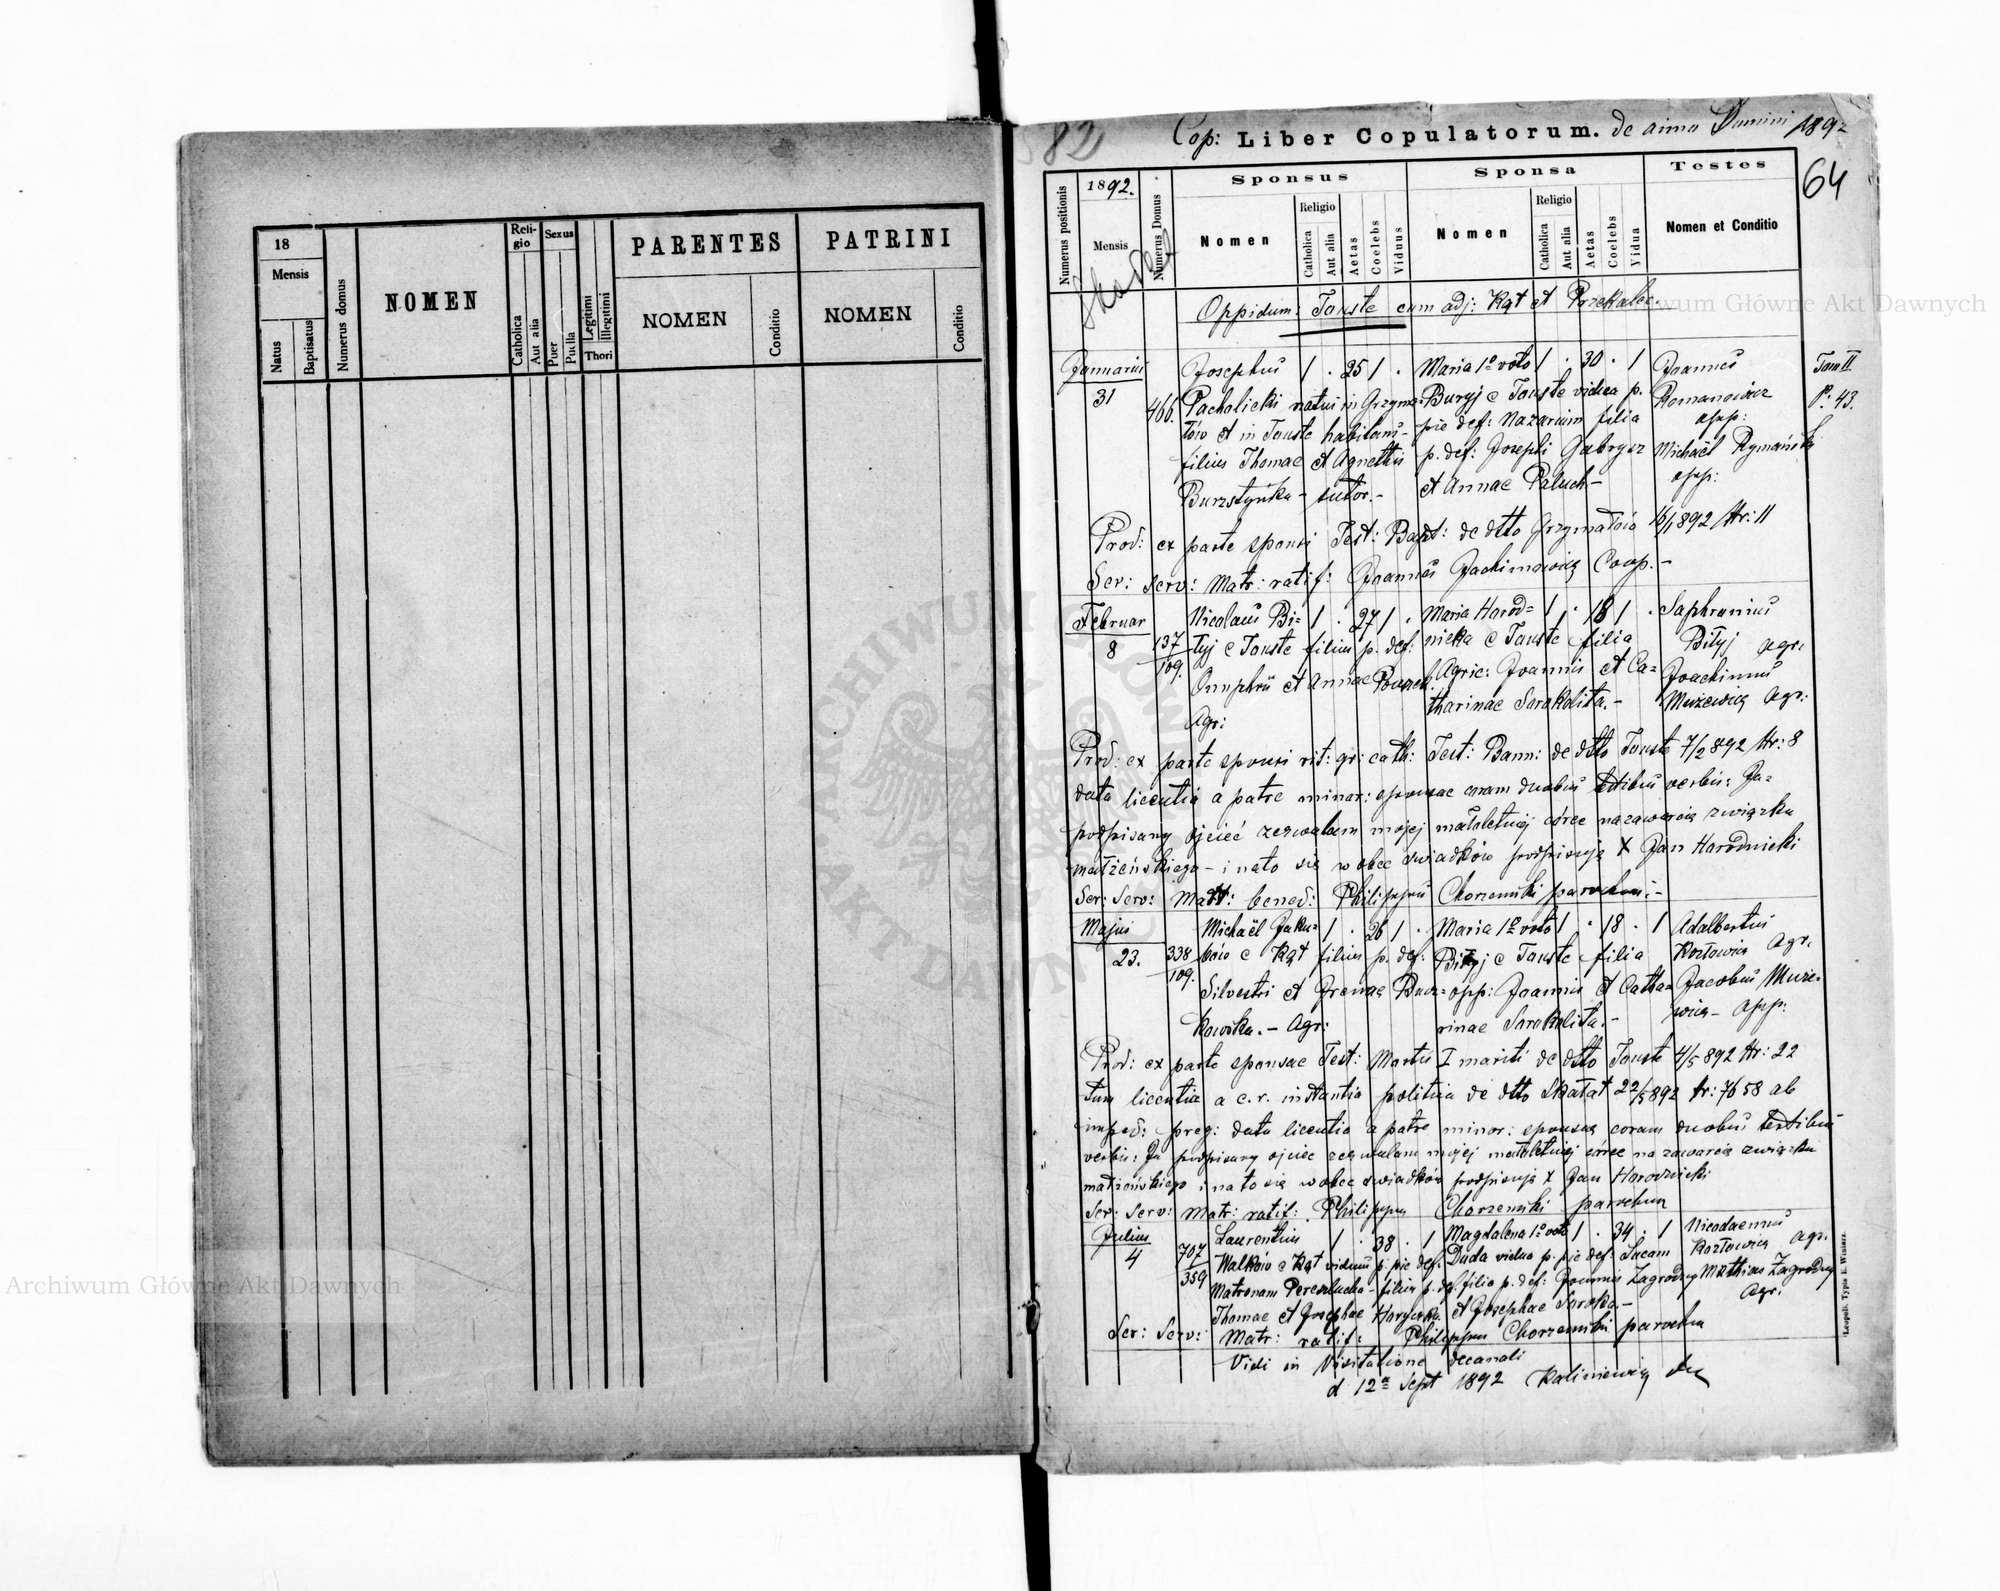 18
Mensis
Natus
Baptisatus
Numerus domus
NOMEN
Reli-
gio
Catholica
Aut alia
Sexus
Puer
Puella
Legitimi
Illegitimi
Thori
PARENTES
NOMEN
Conditio
PATRINI
NOMEN
Conditio
82
Cop: Liber Copulatorum. de anno Domini 1892
64
Numerus positionis
1892.
Mensis
Numerus Domus
Sponsus
Nomen
Religio
Catholica
Aut alia
Aetas
Coelebs
Viduus
Sponsa
Nomen
Religio
Catholica
Aut alia
Aetas
Coelebs
Vidua
Testes
Nomen et Conditio
Oppidum: Touste cum adj: Kąt et Przekalec.
Januarius Josephus 1 . 25 1 . Maria 1º voto 1 . 30 . 1 Joannes Tom II
31 466. Pacholicki natus in Grzyma- Buryj e Touste vidua p. Romanowicz P. 43.
łów et in Touste habitans- pie def: Nazarium filia opp:
filius Thomae et Agnethis p. def: Josephi Gabrysz Michaël Rymański
Bursztyńka - sutor.- et Annae Paluch.- opp:
Prod: ex parte sponsi Test: Bapt: de dtto Grzymałów 16/1892 Nr: 11
Ser: Serv: Matr: ratif: Joannes Jachimowicz Coop.-
Februar Nicolaus Bi= 1 . 27 1 . Maria Harod= 1 . 18 1 . Saphronius
8 137/109. tyj e Touste filius p. def: nicka e Touste filia Bityj agr:
Onuphrii et Annae Agric: Joannis et Ca= Joachimus
Agr: tharinae Sarakalita.- Mużewicz Agr:
Prod: ex parte sponsi rit: gr: cath: Test: Bann: de dtto Touste 7/2892 Nr: 8
data licentia a patre minor: sponsae coram duobus testibus verbis: Ja
podpisany ojciec zezwalam mojej małoletniej córce na zawarcie związku
małżeńskiego - i na to się wobec świadków podpisuję X Jan Harodnicki
Ser: Serv: Matr: bened: Philippus Chorzemski parochus.-
Majus Michaël Jaku= 1 . 26 1 . Maria 1º voto 1 . 18 . 1 Adalbertus
23. 338/109. bów e Kąt filius p. def: Bityj e Touste filia Kozłowicz Agr.
Silvestri et Irenae Bur= opp: Joannis et Catha= Jacobus Muże=
kowska.- Agr: rinae Sarakalita.- wicz - opp:
Prod: ex parte sponsae Test: Mortis I mariti de dtto Touste 4/5892 Nr: 22
Tum licentia a c. r. instantia politica de dtto Skałat 22/5892 Nr: 7658 ab
imped: preg: data licentia a patre minor: sponsae coram duobus testibus
verbis: Ja podpisany ojciec zezwalam mojej małoletniej córce na zawarcie związku
małżeńskiego i na to się wobec świadków podpisuję X Jan Harodnicki
Ser: Serv: Matr: ratif: Philippus Chorzemski parochus
Julius Laurentius 1 . 38 . 1 Magdalena 1º voto 1 . 34 . 1 Nicodaemus
4 707/359 Walków e Kąt viduus p. pie def: Duda vidua p. pie def: Lucam Kozłowicz Agr.
Matronam - filius p. def. filia p. def: Joannis Zagrodny Mathias Zagrodny
Thomae et Josephae et Josephae Saroka.- Agr.
Ser: Serv: Matr: ratif: Philippus Chorzemski parochus
Vidi in Visitatione decanali
d 12ª Sept 1892 Kaliniewicz
Leopoli. Typis E. Winiarz.
Archiwum Główne Akt Dawnych
Archiwum Główne Akt Dawnych
ARCHIWUM GŁÓWNE AKT DAWNYCH